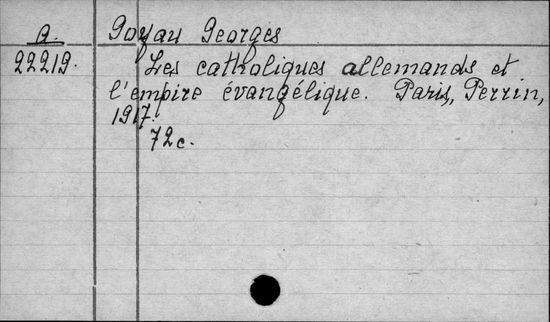 a. Goyau Georges
22219. Les catholiques allemands et
l'empire évangélique. Paris, Perrin,
1917.
72c.